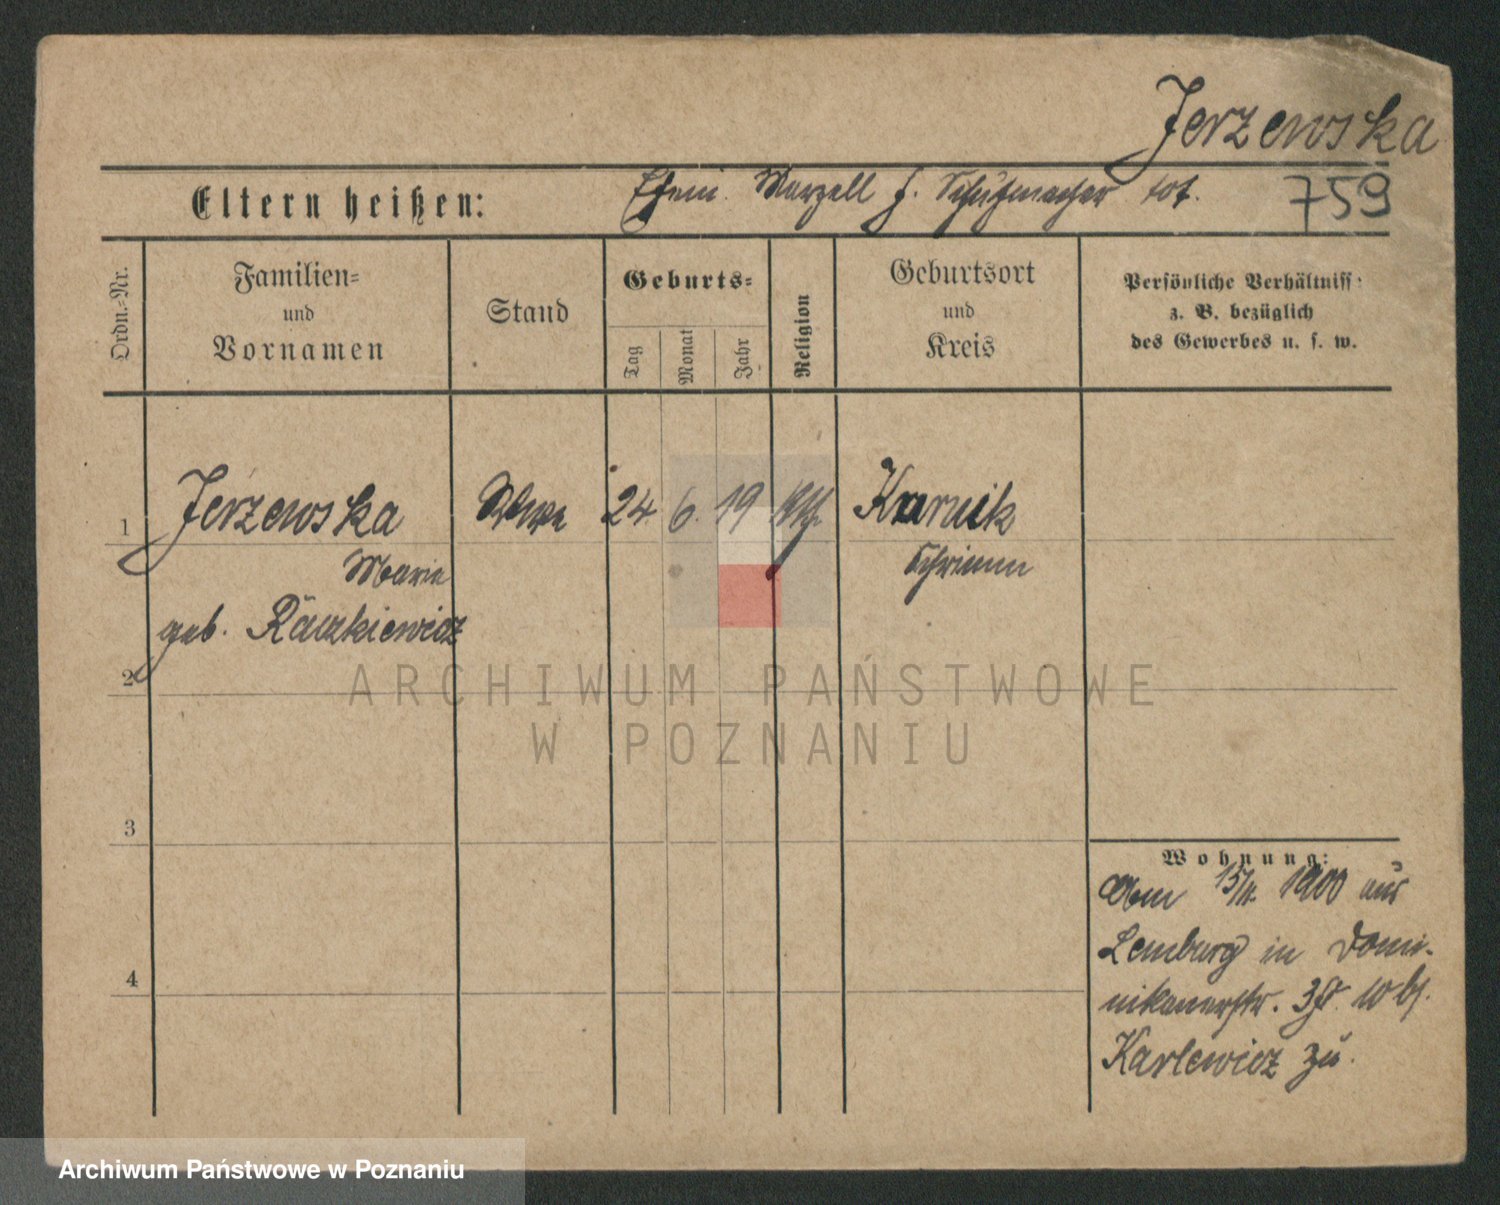 Jerzewska
Eltern heißen: Ehem. Marzell J. Schuhmacher tot. 759
Ordn.-Nr.
Familien-
und
Vornamen
Stand
Geburts-
Tag
Monat
Jahr
Religion
Geburtsort
und
Kreis
Persönliche Verhältnisse
z. B. bezüglich
des Gewerbes u. s. w.
1 Jerzewska Wwe 24. 6. 19 kth. Kurnik
Marie Schrimm
geb. Raczkiewicz
2
ARCHIWUM PAŃSTWOWE
W POZNANIU
3
Wohnung:
1900 aus
Lemburg in Domi-
nikanerstr. 3 II. W bei
Karlewicz zu.
4
Archiwum Państwowe w Poznaniu